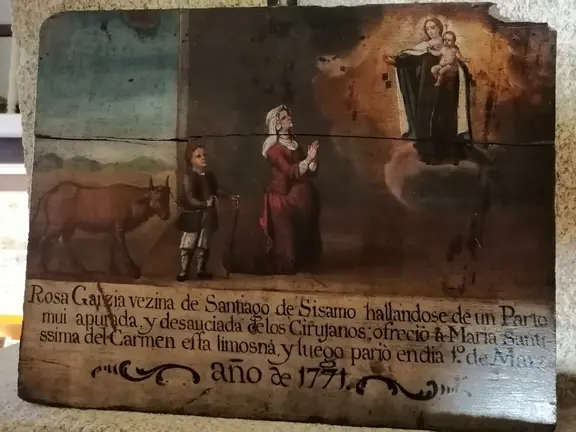 Rosa Garzia vezina de Santiago de Sisamo hallandose de un Parto
mui apurada, y desauciada de los Cirujanos; ofreció á Maria Santi-
ssima del Carmen esta limosna, y luego parió en dia 1º de Marz
año de 1771.